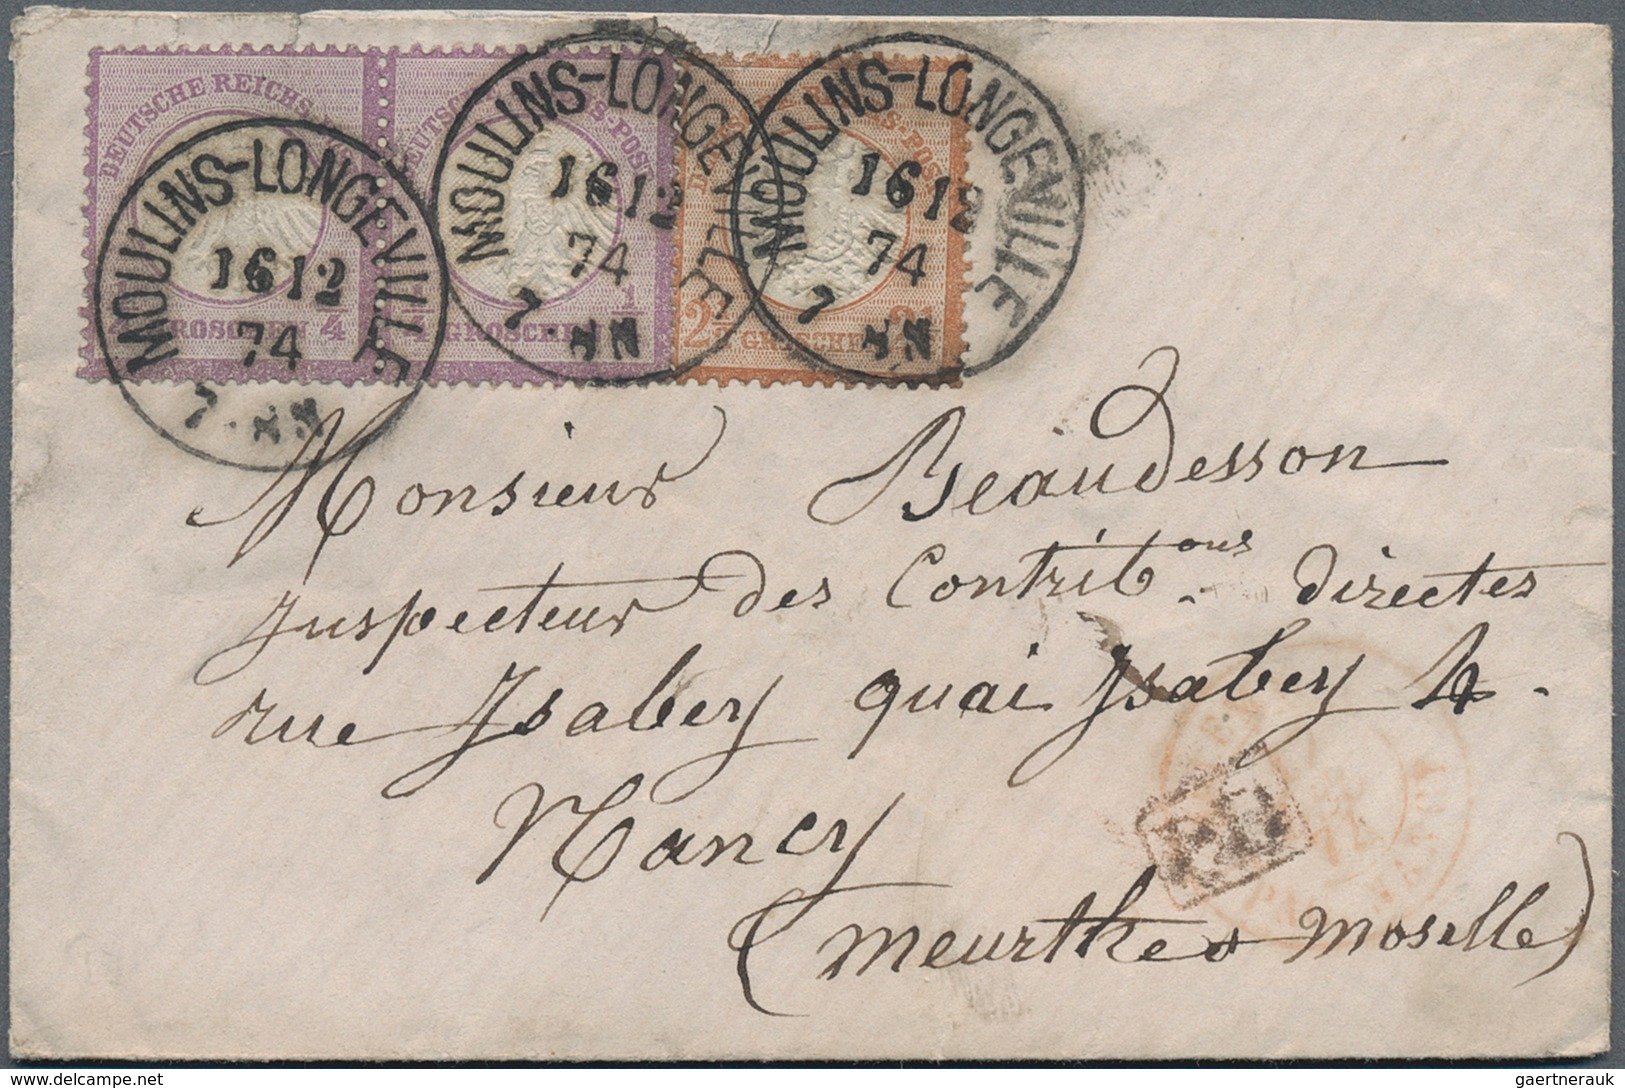 DEUTSCHE REICHS
¼ GROSCHEN ¼
GROSCHEN ¼
2½ GROSCHEN 2½
MOULINS-LONGEVILLE
16 12
74
7·NN
MOULINS-LONGEVILLE
16 12
74
7·NN
MOULINS-LONGEVILLE
16 12
74
7·NN
Monsieur Beaudesson
Inspecteur des Contrib.ons directes
rue Isabey quai Isabey 4.
Nancy
(Meurthe & Moselle)
PD
delcampe.net
gaertnerauk